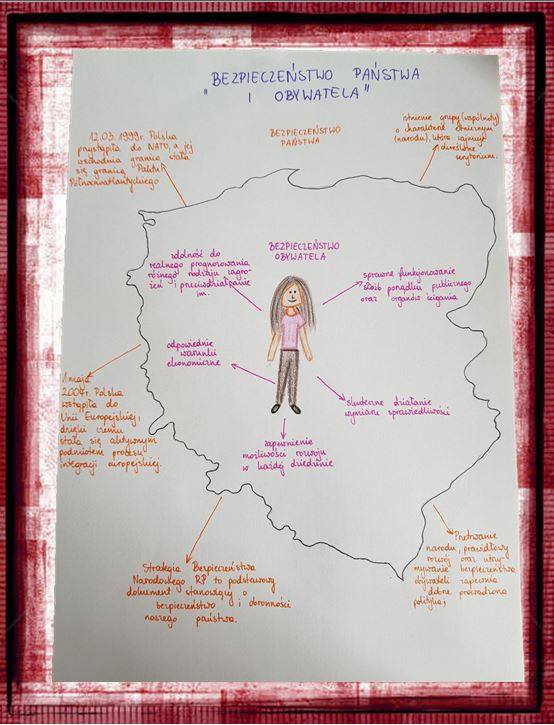 BEZPIECZEŃSTWO PAŃSTWA
"I OBYWATELA"
12.03.1999r. Polska
przystąpiła do NATO, a jej
wschodnia granica stała
się granicą Paktu
Północnoatlantyckiego
BEZPIECZEŃSTWO
PAŃSTWA
istnienie grupy (wspólnoty)
o charakterze etnicznym
(narodu), która zajmuje
określone
terytorium.
BEZPIECZEŃSTWO
OBYWATELA
zdolność do
realnego prognozowania
różnego rodzaju zagro-
żeń i przeciwdziałanie
im.
sprawne funkcjonowanie
służb porządku publicznego
oraz organów ścigania
odpowiednie
warunki
ekonomiczne
skuteczne działanie
wymiaru sprawiedliwości
zapewnienie
możliwości rozwoju
w każdej dziedzinie
1 maja
2004r. Polska
wstąpiła do
Unii Europejskiej,
dzięki czemu
stała się aktywnym
podmiotem procesu
integracji europejskiej.
Strategia Bezpieczeństwa
Narodowego RP to podstawowy
dokument stanowiący o
bezpieczeństwo i obronności
naszego państwa.
Przetrwanie
narodu, prawidłowy
rozwój oraz utrzy-
mywanie bezpieczeństwa
obywateli zapewnia
dobrze prowadzona
polityka;